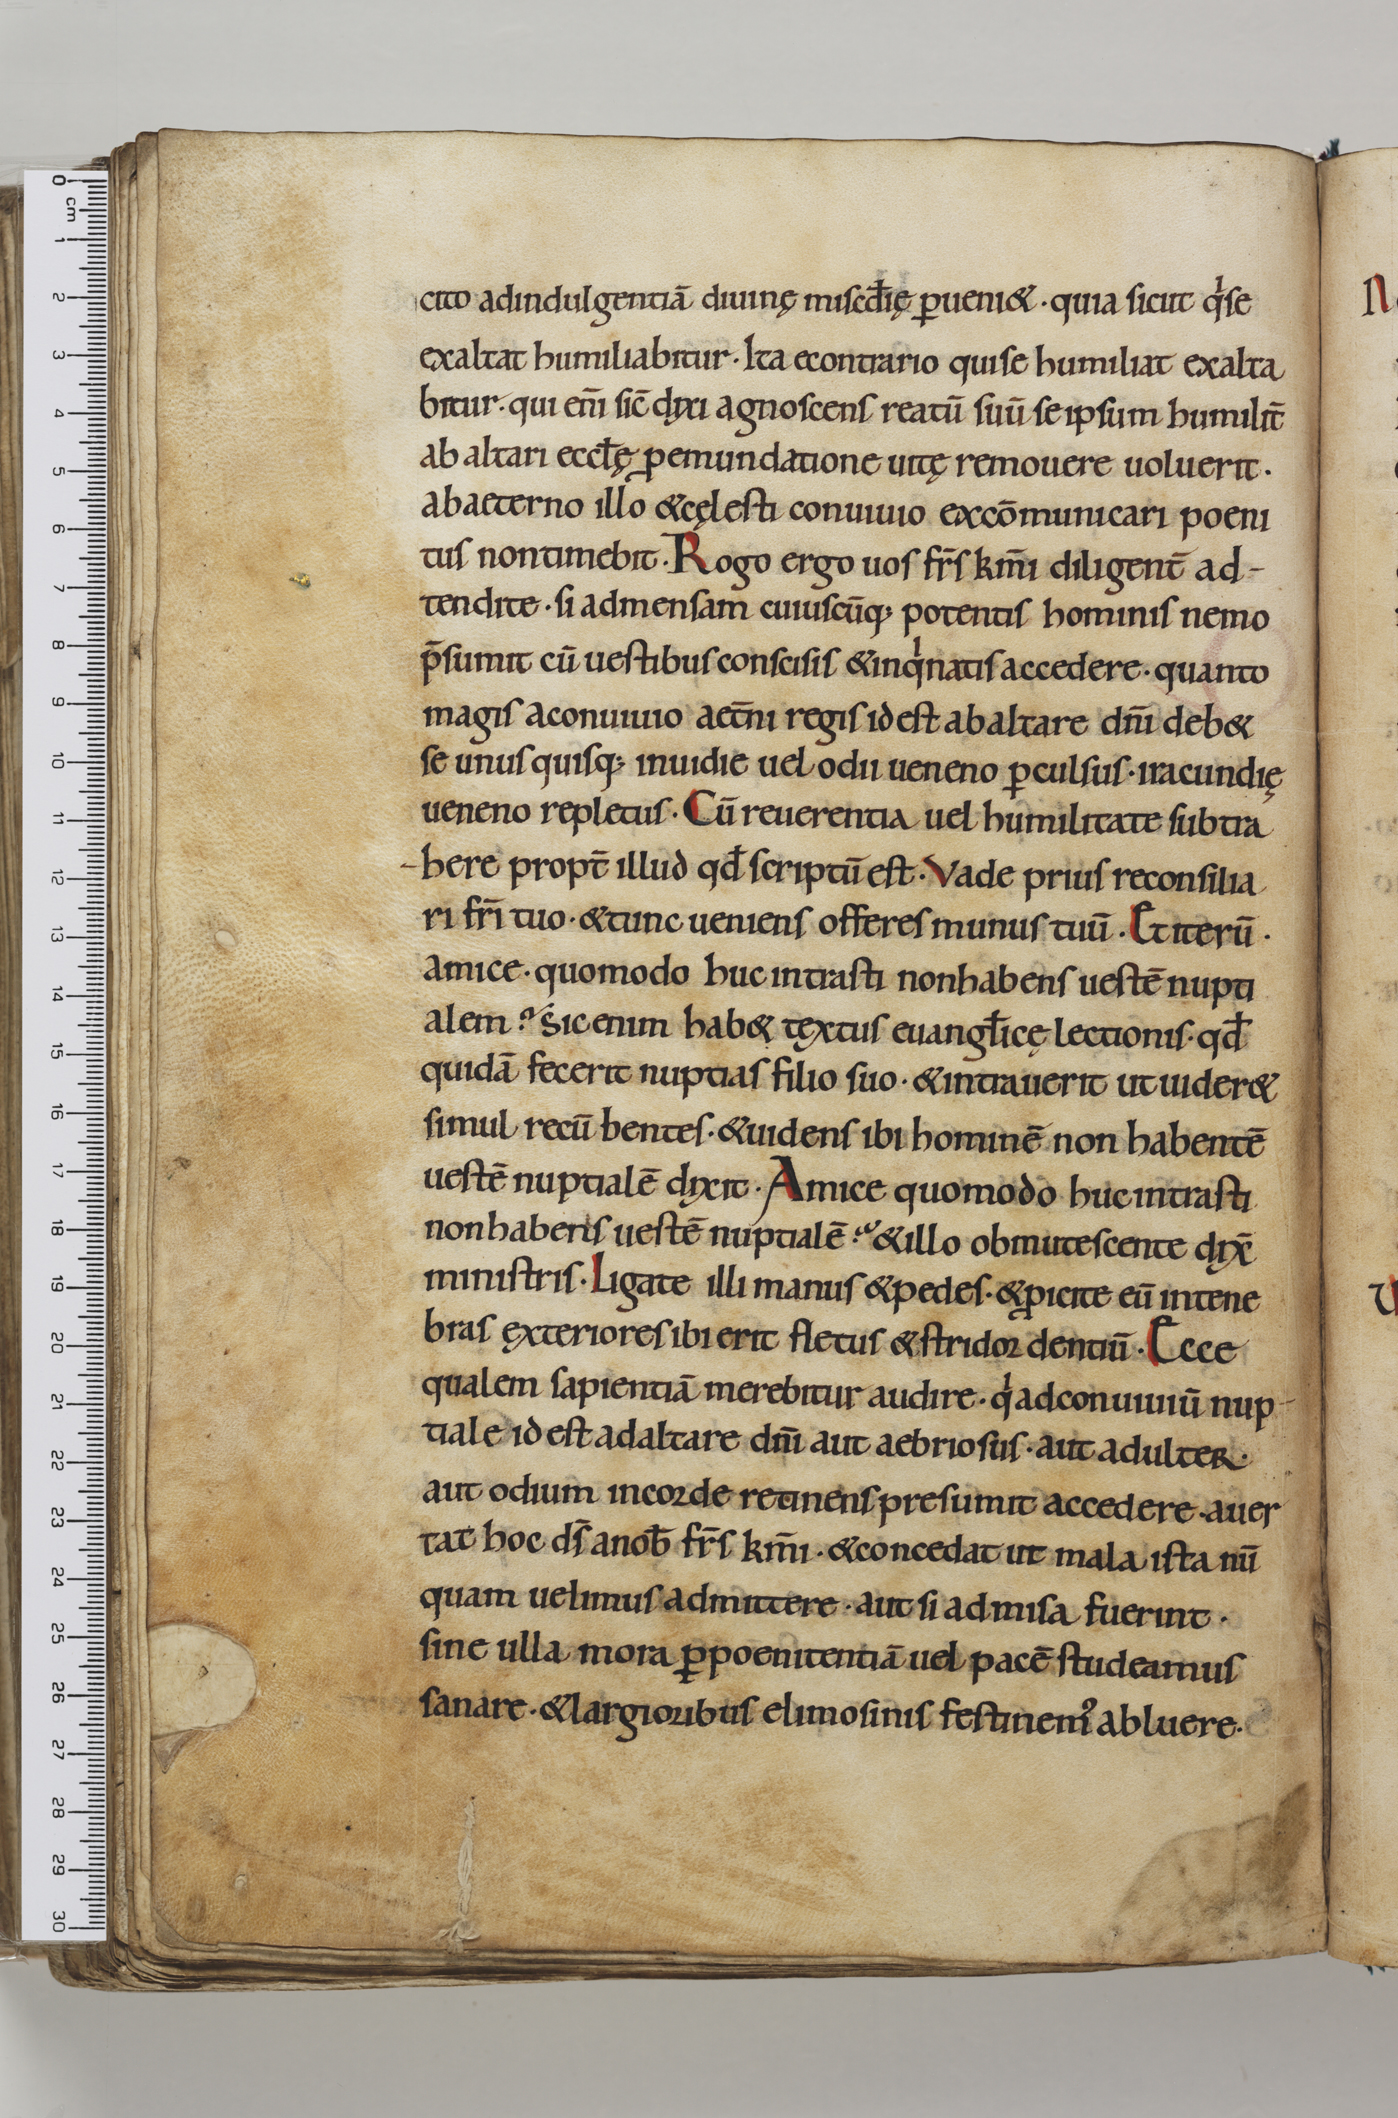 cito adindulgentiā diuinę misc̄dię ꝑueni&·quia sicut q̍se
exaltat humiliabitur·Ita econtrario quise humiliat exalta
bitur·qui em̄ sic̄ dixi agnoscens reatū suū se ipsum humilit̄
ab altari eccłę ꝑemundatione uitę remouere uoluerit·
abaeterno illo &cęlesti conuiuio excōmunicari poeni
tus nontimebit·Rogo ergo uos fr̄s km̄i diligent̄ ad-
tendite·si admensam cuiuscūq; potentis hominis nemo
p̄sumit cū uestibus conscisis &inq̍natis accedere·quanto
magis aconuiuio aet̄ni regis id est abaltare dn̄i deb&
se unus quisq; inuidie uel odii ueneno ꝑculsus·iracundię
ueneno repletus·Cū reuerentia uel humilitate subtra
here propt̄ illud qđ scriptū est·Vade prius reconsilia
ri fr̄i tuo·&tunc ueniens offeres munus tuū·Et iterū·
amice·quomodo huc intrasti nonhabens uestē nupti
alem? Sic enim hab& tęxtus euangłicę lectionis·qđ
quidā fecerit nuptias filio suo·&intrauerit ut uider&
simul recū bentes·&uidens ibi hominē non habentē
uestē nuptialē dixit·Amice quomodo huc intrasti
nonhabens uestē nuptialē? &illo obmutescente dix̄
ministris·Ligate illi manus &pedes·&ꝓicite eū intene
bras ęxteriores ibi erit fletus &stridor dentiū·Ecce
qualem sapientiā merebitur audire·q̍ adconuiuiū nup-
tiale id est adaltare dn̄i aut aebriosus·aut adulter·
aut odium incorde retinens presumit accedere·auer
tat hoc ds̄ anob̄ fr̄s km̄i·&concedat ut mala ista nū
quam uelimus admittere·aut si admisa fuerint·
sine ulla mora ꝑpoenitentiā uel pacē studeamus
sanare·&largioribus elimosinis festinemꝰ abluere·
0 cm 1 2 3 4 5 6 7 8 9 10 11 12 13 14 15 16 17 18 19 20 21 22 23 24 25 26 27 28 29 30